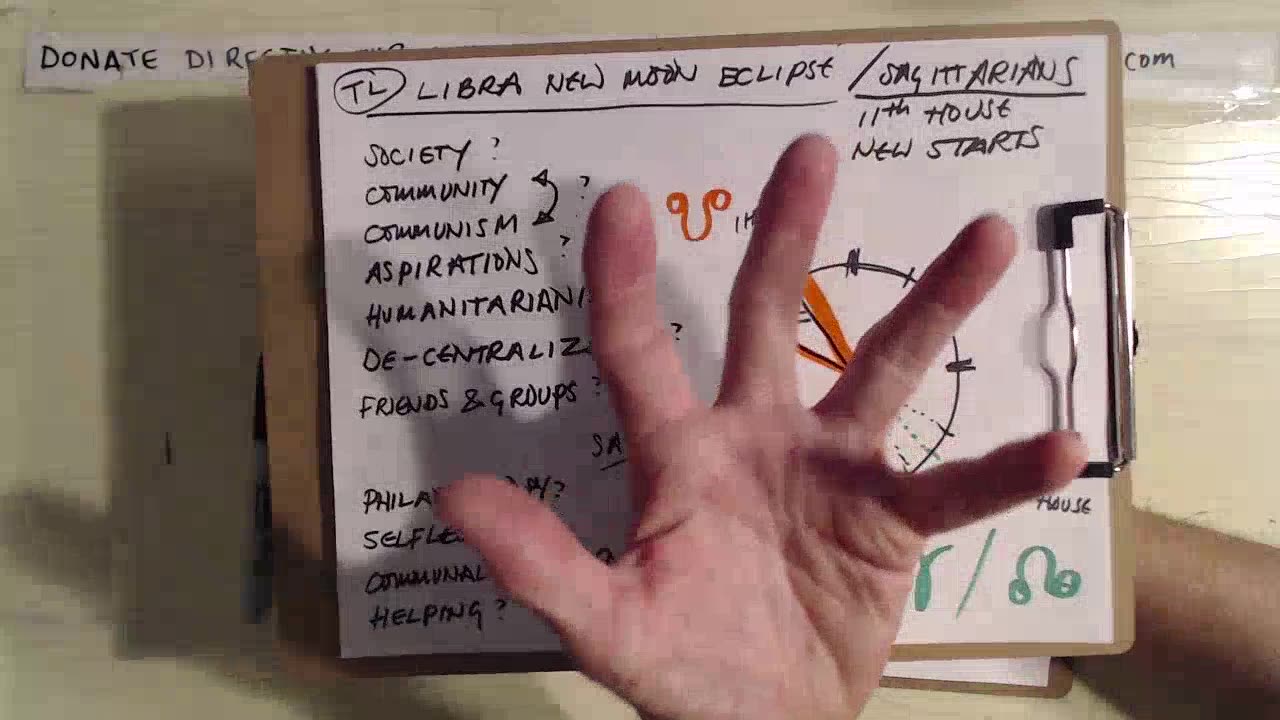 DONATE DIRECTLY com
TL LIBRA NEW MOON ECLIPSE / SAGITTARIANS
11th HOUSE
NEW STARTS
SOCIETY ?
COMMUNITY ?
COMMUNISM
ASPIRATIONS ?
HUMANITARIANI
DE-CENTRALIZ ?
FRIENDS & GROUPS ?
SA
PHILA PY?
SELFLE
COMMUNAL ?
HELPING ?
HOUSE
♈ / ☊